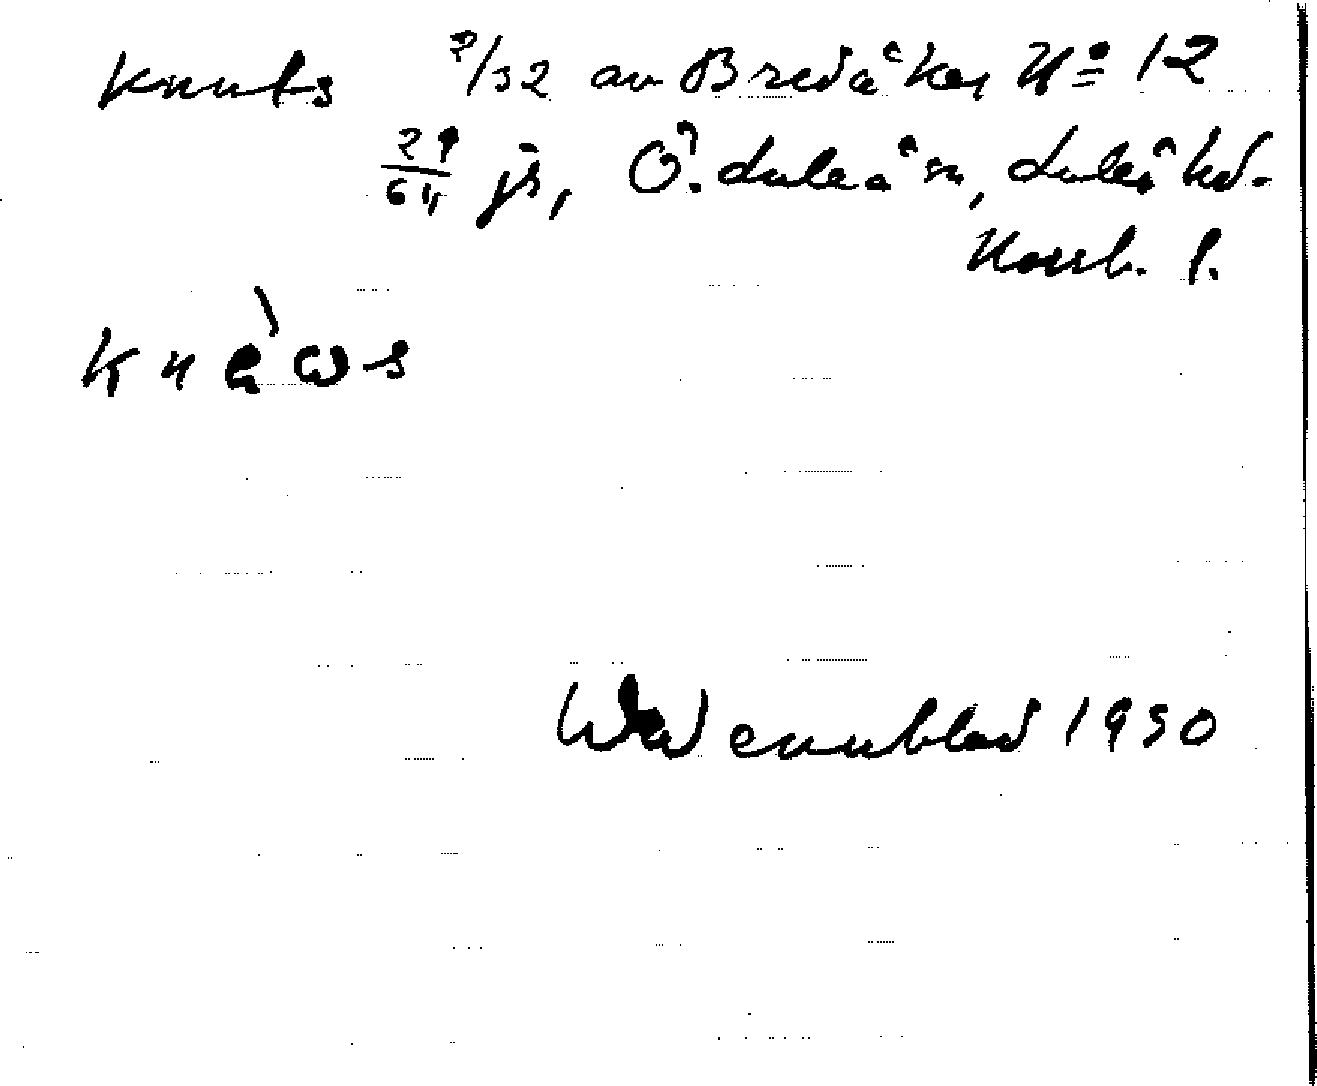 Knuts 7/32 av Bredåker No 12
29/64 js, Ö. Luleå sn, Luleå kd.
Norrb. l.
Wadennblad 1950